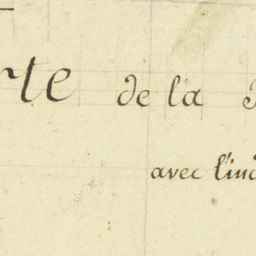 rte de la
avec l'ind